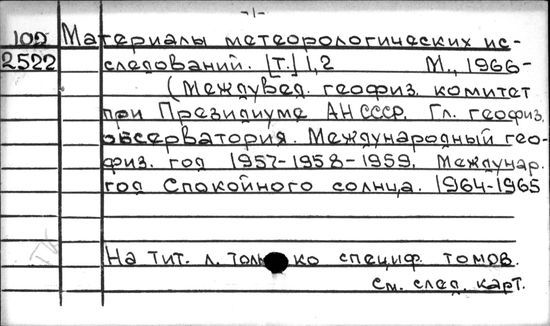 -1-
10D Материалы метеорологических ис-
2522 следований. [Т.] 1,2 М., 1966-
(Междувед. геофиз. комитет
при Президиуме АН СССР. Гл. геофиз.
обсерватория. Международный гео-
физ. год 1957-1958-1959. Междунар.
год Спокойного солнца. 1964-1965
На тит. л. только специф. томов.
См. след. карт.